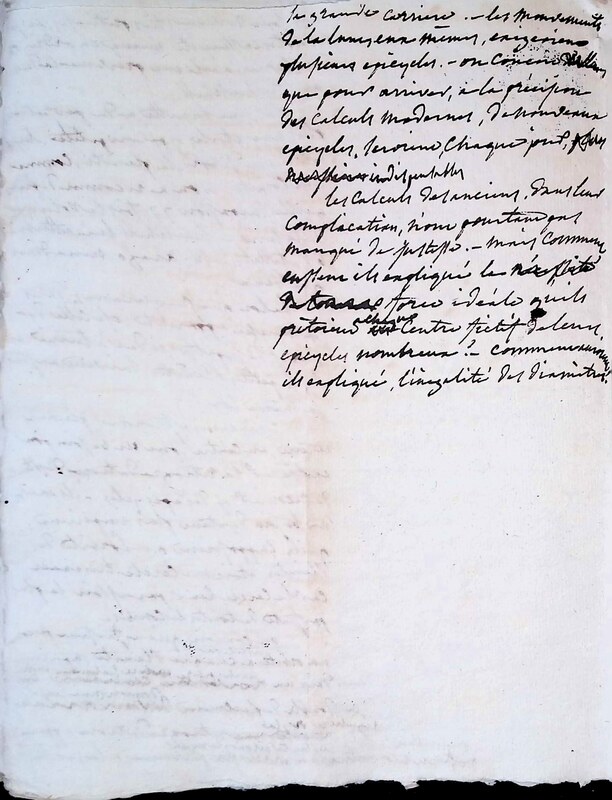 la grande carriere. - les mouvements
de la lune, eux mêmes, exigerent
plusieurs epicycles. - on concoit
que pour arriver, a la précision
des calculs modernes, de nouveaux
epicycles, seroient, chaque jour,
indispensables
les calculs des anciens, dans leur
complication, n'ont pourtant pas
manqué de justesse. - mais comment
eussent ils expliqué la
force idéale qu'ils
prétoient centre fictif de leurs
epicycles nombreux? - comment
ils expliqué, l'inégalité des diametres